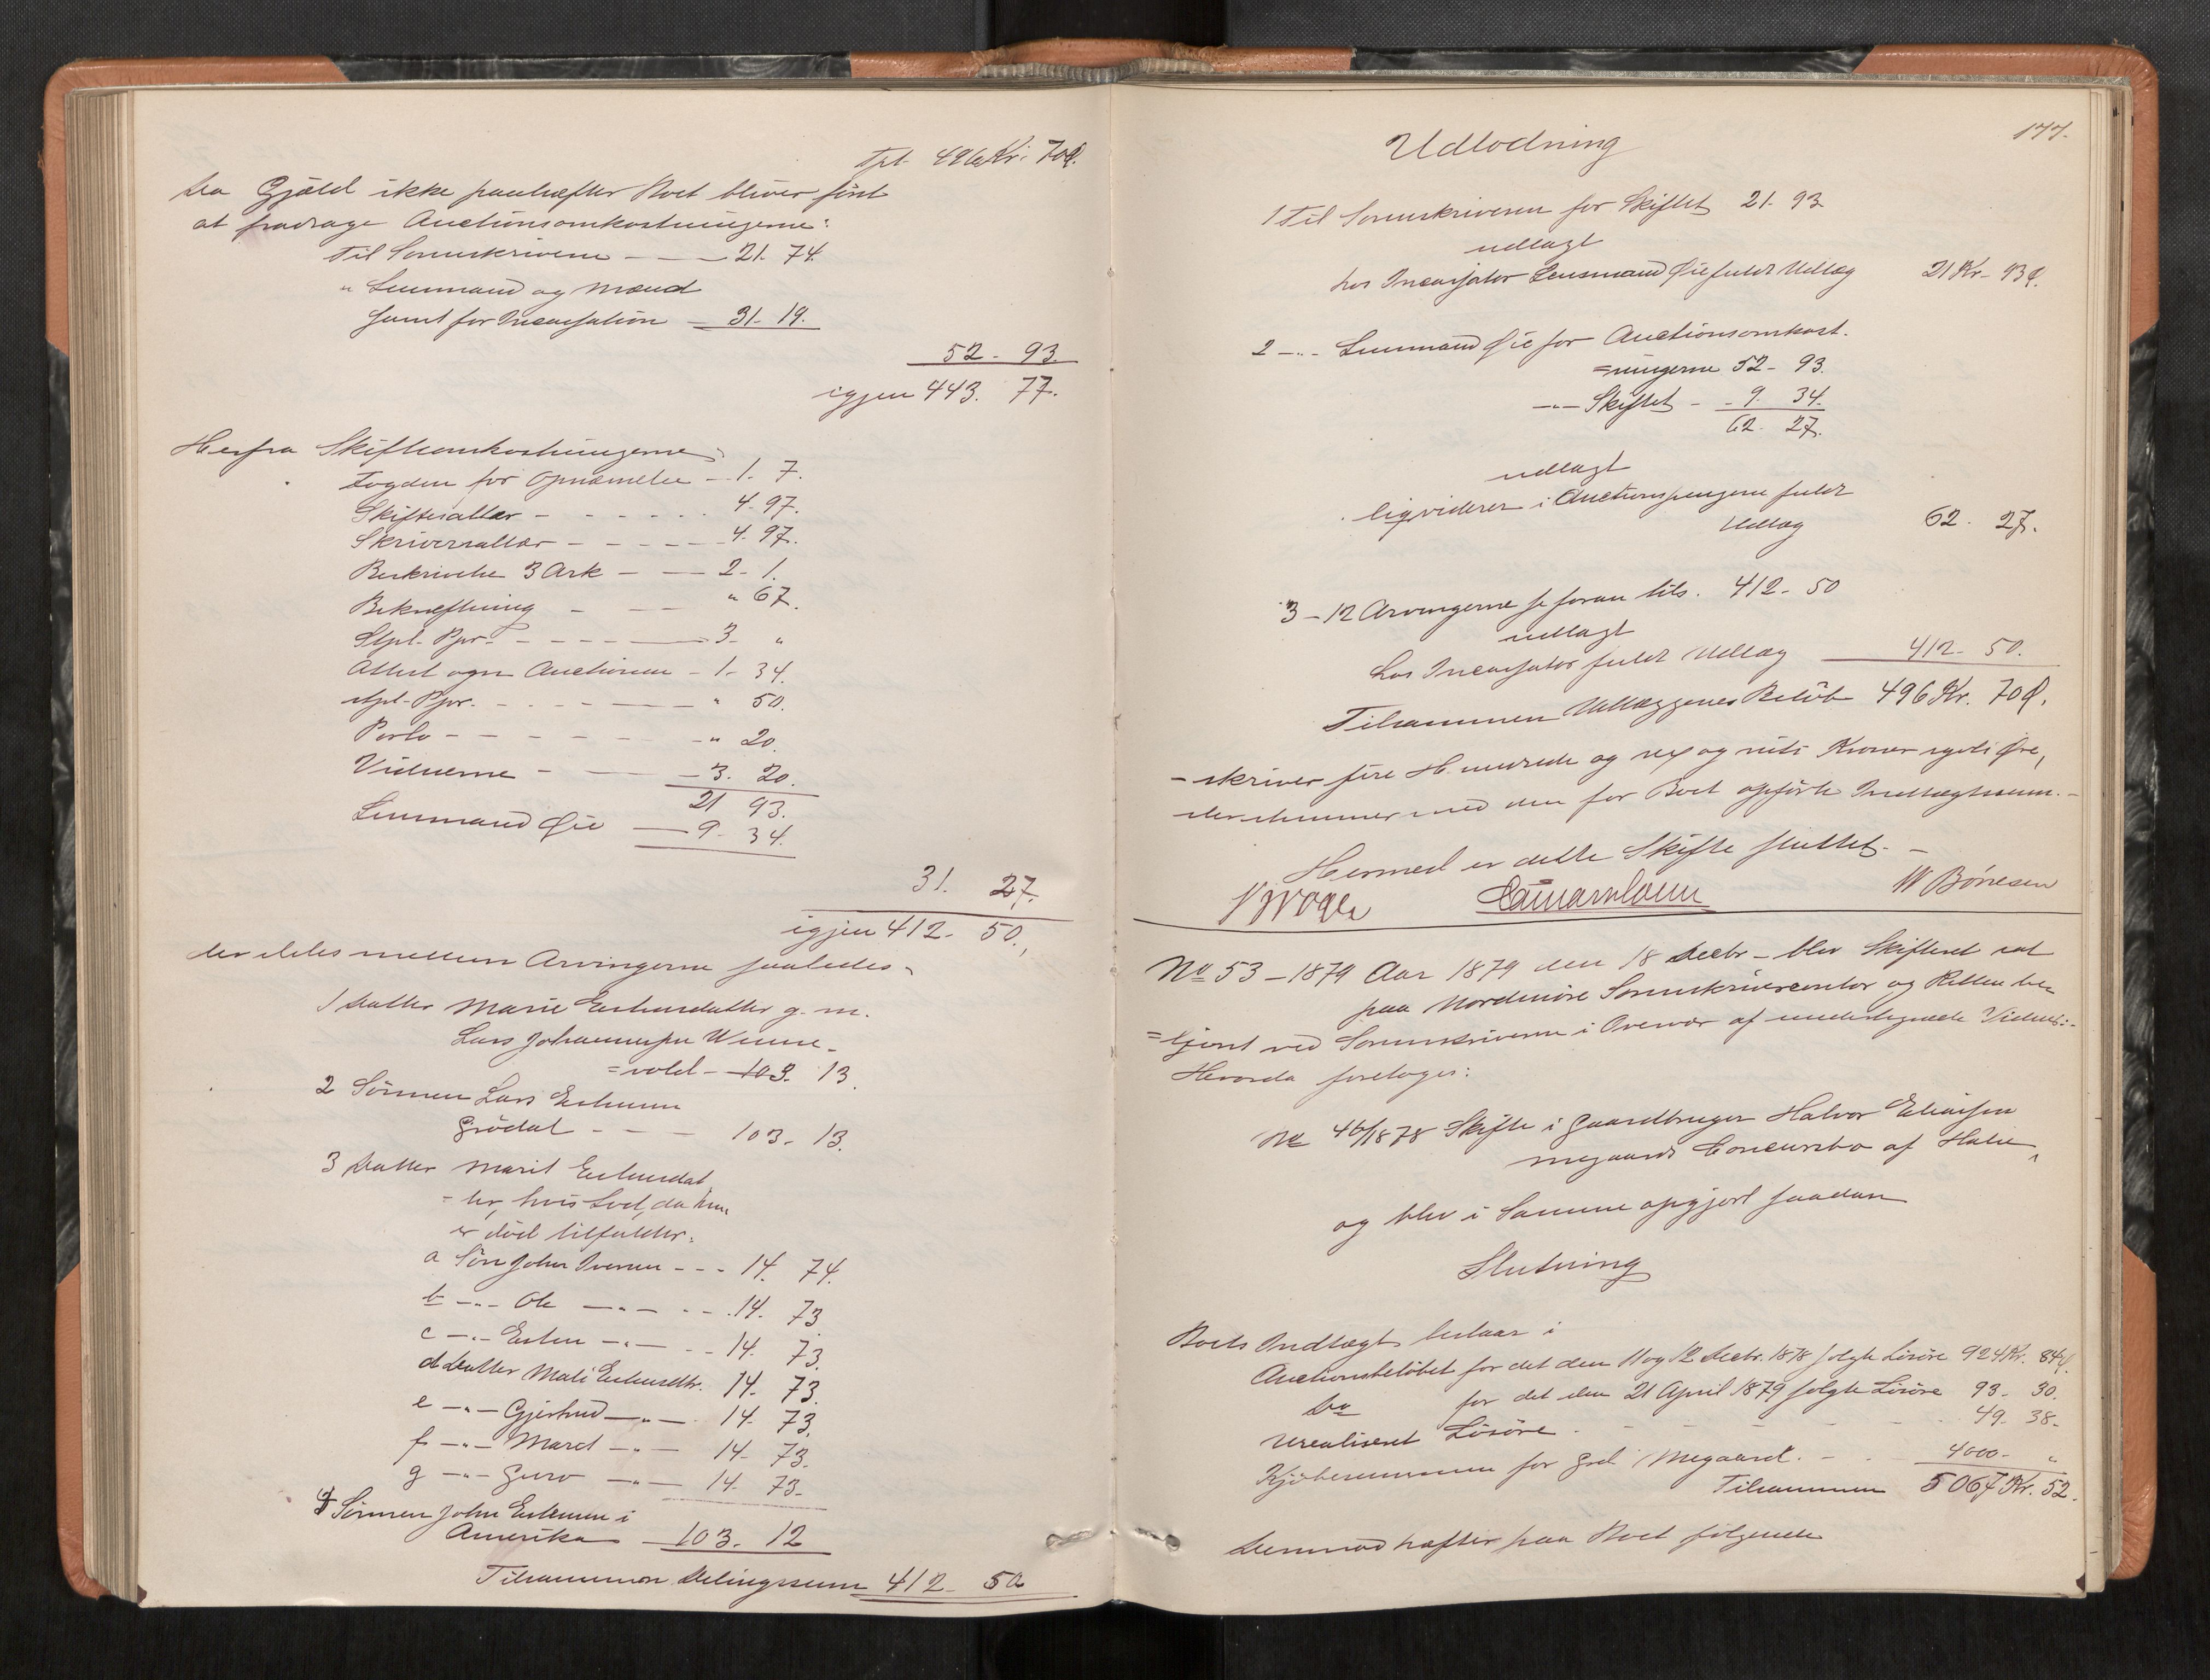 Tpt. 496 Kr. 70 Ø.
Da Gjæld ikke paahæfter Boet bliver først
at fradrage Auctionsomkostningerne:
Til Sorenskriveren - - 21. 74.
" Lensmand og Mænd
samt for Incassation - 31- 19.
52- 93.
igjen 443. 77.
Herfra Skifteomkostningerne
Fogden for Opnævnelse - 1. 7.
Skiftesallær - - - 4. 97.
Skriversallær - - - 4. 97.
Beskrivelse 3 Ark - - 2- 1.
Bekræftning - - " 67.
Stpl. Ppr. - - - 3- "
Attest ogsa Auctionen - 1- 34.
stpl. Ppr. - - - " 50.
Porto - - - " 20.
Vidnerne - - 3. 20.
21 93.
Lensmand Øie - 9- 34.
31. 27.
igjen 412- 50.,
der deles mellem Arvingerne saaledes,
1 Datter Marie Estensdatter g. m.
Lars Johannessen Winne-
=vold - 103. 13.
2 Sønnen Lars Estensen
Grødal - - - 103- 13.
3 Datter Marit Estensdat
=ter, hvis Lod, da hun
er død tilfalder:
a Søn John Iversen - - - 14. 74.
b -"- Ole -"- - - 14. 73
c -"- Esten -"- - - 14- 73.
d Datter Mali Estensdtr. 14- 73.
e -"- Gjertrud -"- 14- 73.
f -"- Maret -"- 14- 73.
g -"- Guro -"- 14- 73-
4 Sønnen John Estensen i
Amerika - 103. 12
Tilsammen Delingssum 412- 50
177.
Udlodning
1 Til Sorenskriveren for Skiftet 21- 93
udlagt
hos Incassator Lensmand Øie fuldt Udlæg 21 Kr- 93 Ø.
2 -"- Lensmand Øie for Auctionsomkost-
=ningerne 52- 93.
-"- Skiftet - - 9. 34.
62. 27.
udlagt
liqviderer i Auctionspengene fuldt
Udlæg 62. 27.
3-12 Arvingerne se foran tils. 412- 50
udlagt
hos Incassator fuldt Udlæg 412- 50.
Tilsammen Udlæggenes Beløb 496 Kr. 70 Ø.
- skriver fire Hundrede og sex og niti Kroner sytti Øre,
der stemmer med den for Boet opførte Indtægtssum.-
Hermed er dette Skifte sluttet. -
W Børresen
No 53-1879 Aar 1879 den 18 Decbr- blev Skifteret sat
paa Nordmøre Sorenskrivercontor og Retten be
=tjent ved Sorenskriveren i Overvær af undertegnede Vidner:-
Hvorda foretoges:
No 46/1878 Skifte i Gaardbruger Halvor
Megaards Concursbo af Halse,
og blev i Samme opgjort saadan
Slutning
Boets Indtægt bestaar i
Auctionsbeløbet for det den 11 og 12 Decbr. 1878 solgte Løsøre 924 Kr. 84 Ø.
Do for det den 21 April 1879 solgte Løsøre 93- 30.
Urealiseret Løsøre - - - 49- 38-
Kjøbesummen for Grd. Megaard. - - 4000- "
Tilsammen 5067 Kr. 52.
Derimod hæfter paa Boet følgende